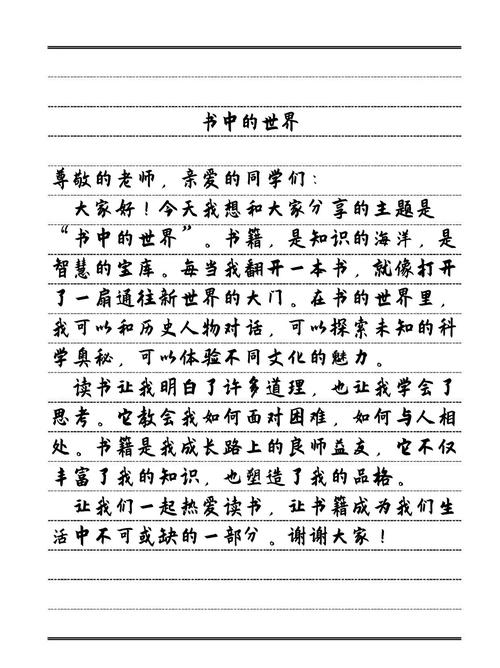 书中的世界
尊敬的老师，亲爱的同学们：
大家好！今天我想和大家分享的主题是
“书中的世界”。书籍，是知识的海洋，是
智慧的宝库。每当我翻开一本书，就像打开
了一扇通往新世界的大门。在书的世界里，
我可以和历史人物对话，可以探索未知的科
学奥秘，可以体验不同文化的魅力。
读书让我明白了许多道理，也让我学会了
思考。它教会我如何面对困难，如何与人相
处。书籍是我成长路上的良师益友，它不仅
丰富了我的知识，也塑造了我的品格。
让我们一起热爱读书，让书籍成为我们生
活中不可或缺的一部分。谢谢大家！